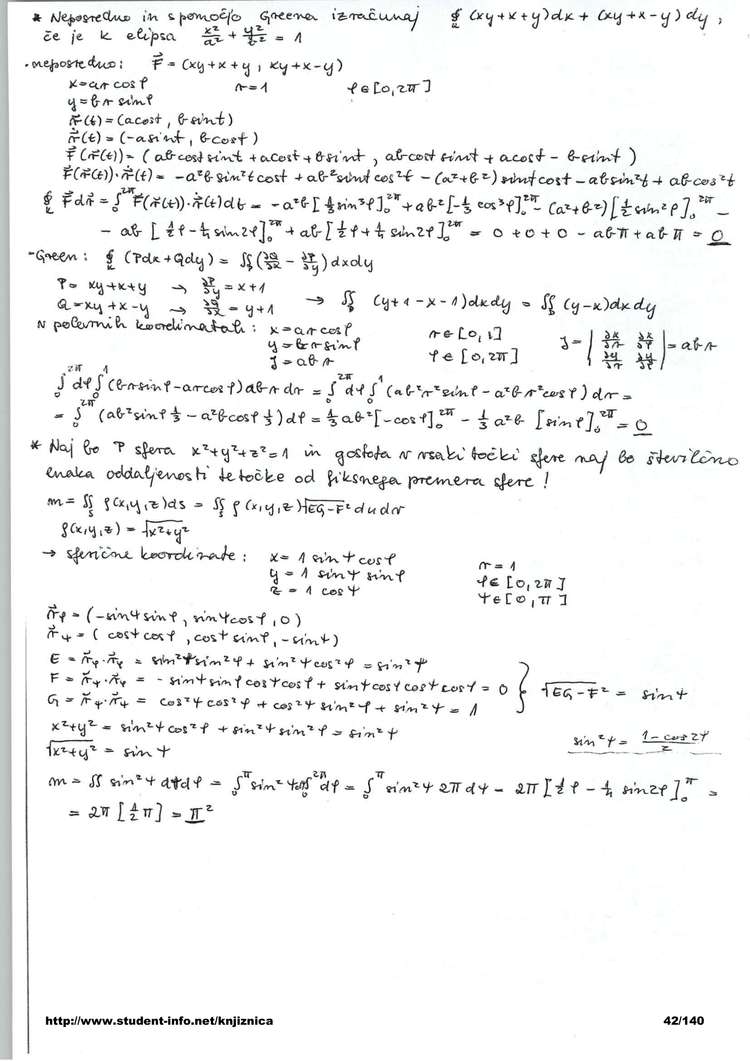 * Neposredno in s pomočjo Greena izračunaj ∮_K (xy+x+y)dx + (xy+x-y)dy,
če je K elipsa x²/a² + y²/b² = 1
- neposredno: F⃗ = (xy+x+y, xy+x-y)
x = a r cos φ   r=1   φ∈[0,2π]
y = b r sin φ
r⃗(t) = (a cost, b sint)
ṙ⃗(t) = (-a sint, b cost)
F⃗(r⃗(t)) = (ab cost sint + a cost + b sint, ab cost sint + a cost - b sint)
F⃗(r⃗(t))·ṙ⃗(t) = -a²b sin²t cost + ab² sint cos²t - (a²+b²) sint cost - ab sin²t + ab cos²t
∮_K F⃗ dr⃗ = ∫₀^2π F⃗(r⃗(t))·ṙ⃗(t)dt = -a²b[⅓ sin³φ]₀^2π + ab²[-⅓ cos³φ]₀^2π - (a²+b²)[½ sin²φ]₀^2π -
- ab [½φ - ¼ sin2φ]₀^2π + ab[½φ + ¼ sin2φ]₀^2π = 0 + 0 + 0 - abπ + abπ = 0
- Green: ∮_K (Pdx + Qdy) = ∬(∂Q/∂x - ∂P/∂y)dxdy
P = xy+x+y → ∂P/∂y = x+1
Q = xy+x-y → ∂Q/∂x = y+1 → ∬_D (y+1-x-1)dxdy = ∬_D (y-x)dxdy
v polarnih koordinatah: x = a r cos φ   r∈[0,1]   J = | ∂x/∂r ∂x/∂φ |
y = b r sin φ   φ∈[0,2π]   | ∂y/∂r ∂y/∂φ | = abr
J = abr
∫₀^2π dφ ∫₀^1 (br sinφ - ar cosφ) abr dr = ∫₀^2π dφ ∫₀^1 (ab²r² sinφ - a²b r² cosφ) dr =
= ∫₀^2π (ab² sinφ ⅓ - a²b cosφ ⅓) dφ = ⅓ ab²[-cosφ]₀^2π - ⅓ a²b [sinφ]₀^2π = 0
* Naj bo P sfera x²+y²+z²=1 in gostota v vsaki točki sfere naj bo številčno
enaka oddaljenosti te točke od fiksnega premera sfere!
m = ∬_S ρ(x,y,z)ds = ∬_S ρ(x,y,z)√(EG-F²) du dv
ρ(x,y,z) = √(x²+y²)
→ sferične koordinate: x = 1 sinψ cosφ   r=1
y = 1 sinψ sinφ   φ∈[0,2π]
z = 1 cosψ   ψ∈[0,π]
r⃗_φ = (-sinψ sinφ, sinψ cosφ, 0)
r⃗_ψ = (cosψ cosφ, cosψ sinφ, -sinψ)
E = r⃗_φ·r⃗_φ = sin²ψ sin²φ + sin²ψ cos²φ = sin²ψ
F = r⃗_ψ·r⃗_φ = -sinψ sinφ cosψ cosφ + sinψ cosφ cosψ cosφ = 0 } √(EG-F²) = sinψ
G = r⃗_ψ·r⃗_ψ = cos²ψ cos²φ + cos²ψ sin²φ + sin²ψ = 1
x²+y² = sin²ψ cos²φ + sin²ψ sin²φ = sin²ψ
√(x²+y²) = sinψ   sin²φ = (1-cos2φ)/2
m = ∬ sin²ψ dψdφ = ∫₀^π sin²ψ dψ ∫₀^2π dφ = ∫₀^π sin²ψ 2π dψ - 2π [½φ - ¼ sin2φ]₀^π =
= 2π [½π] = π²
http://www.student-info.net/knjiznica   42/140